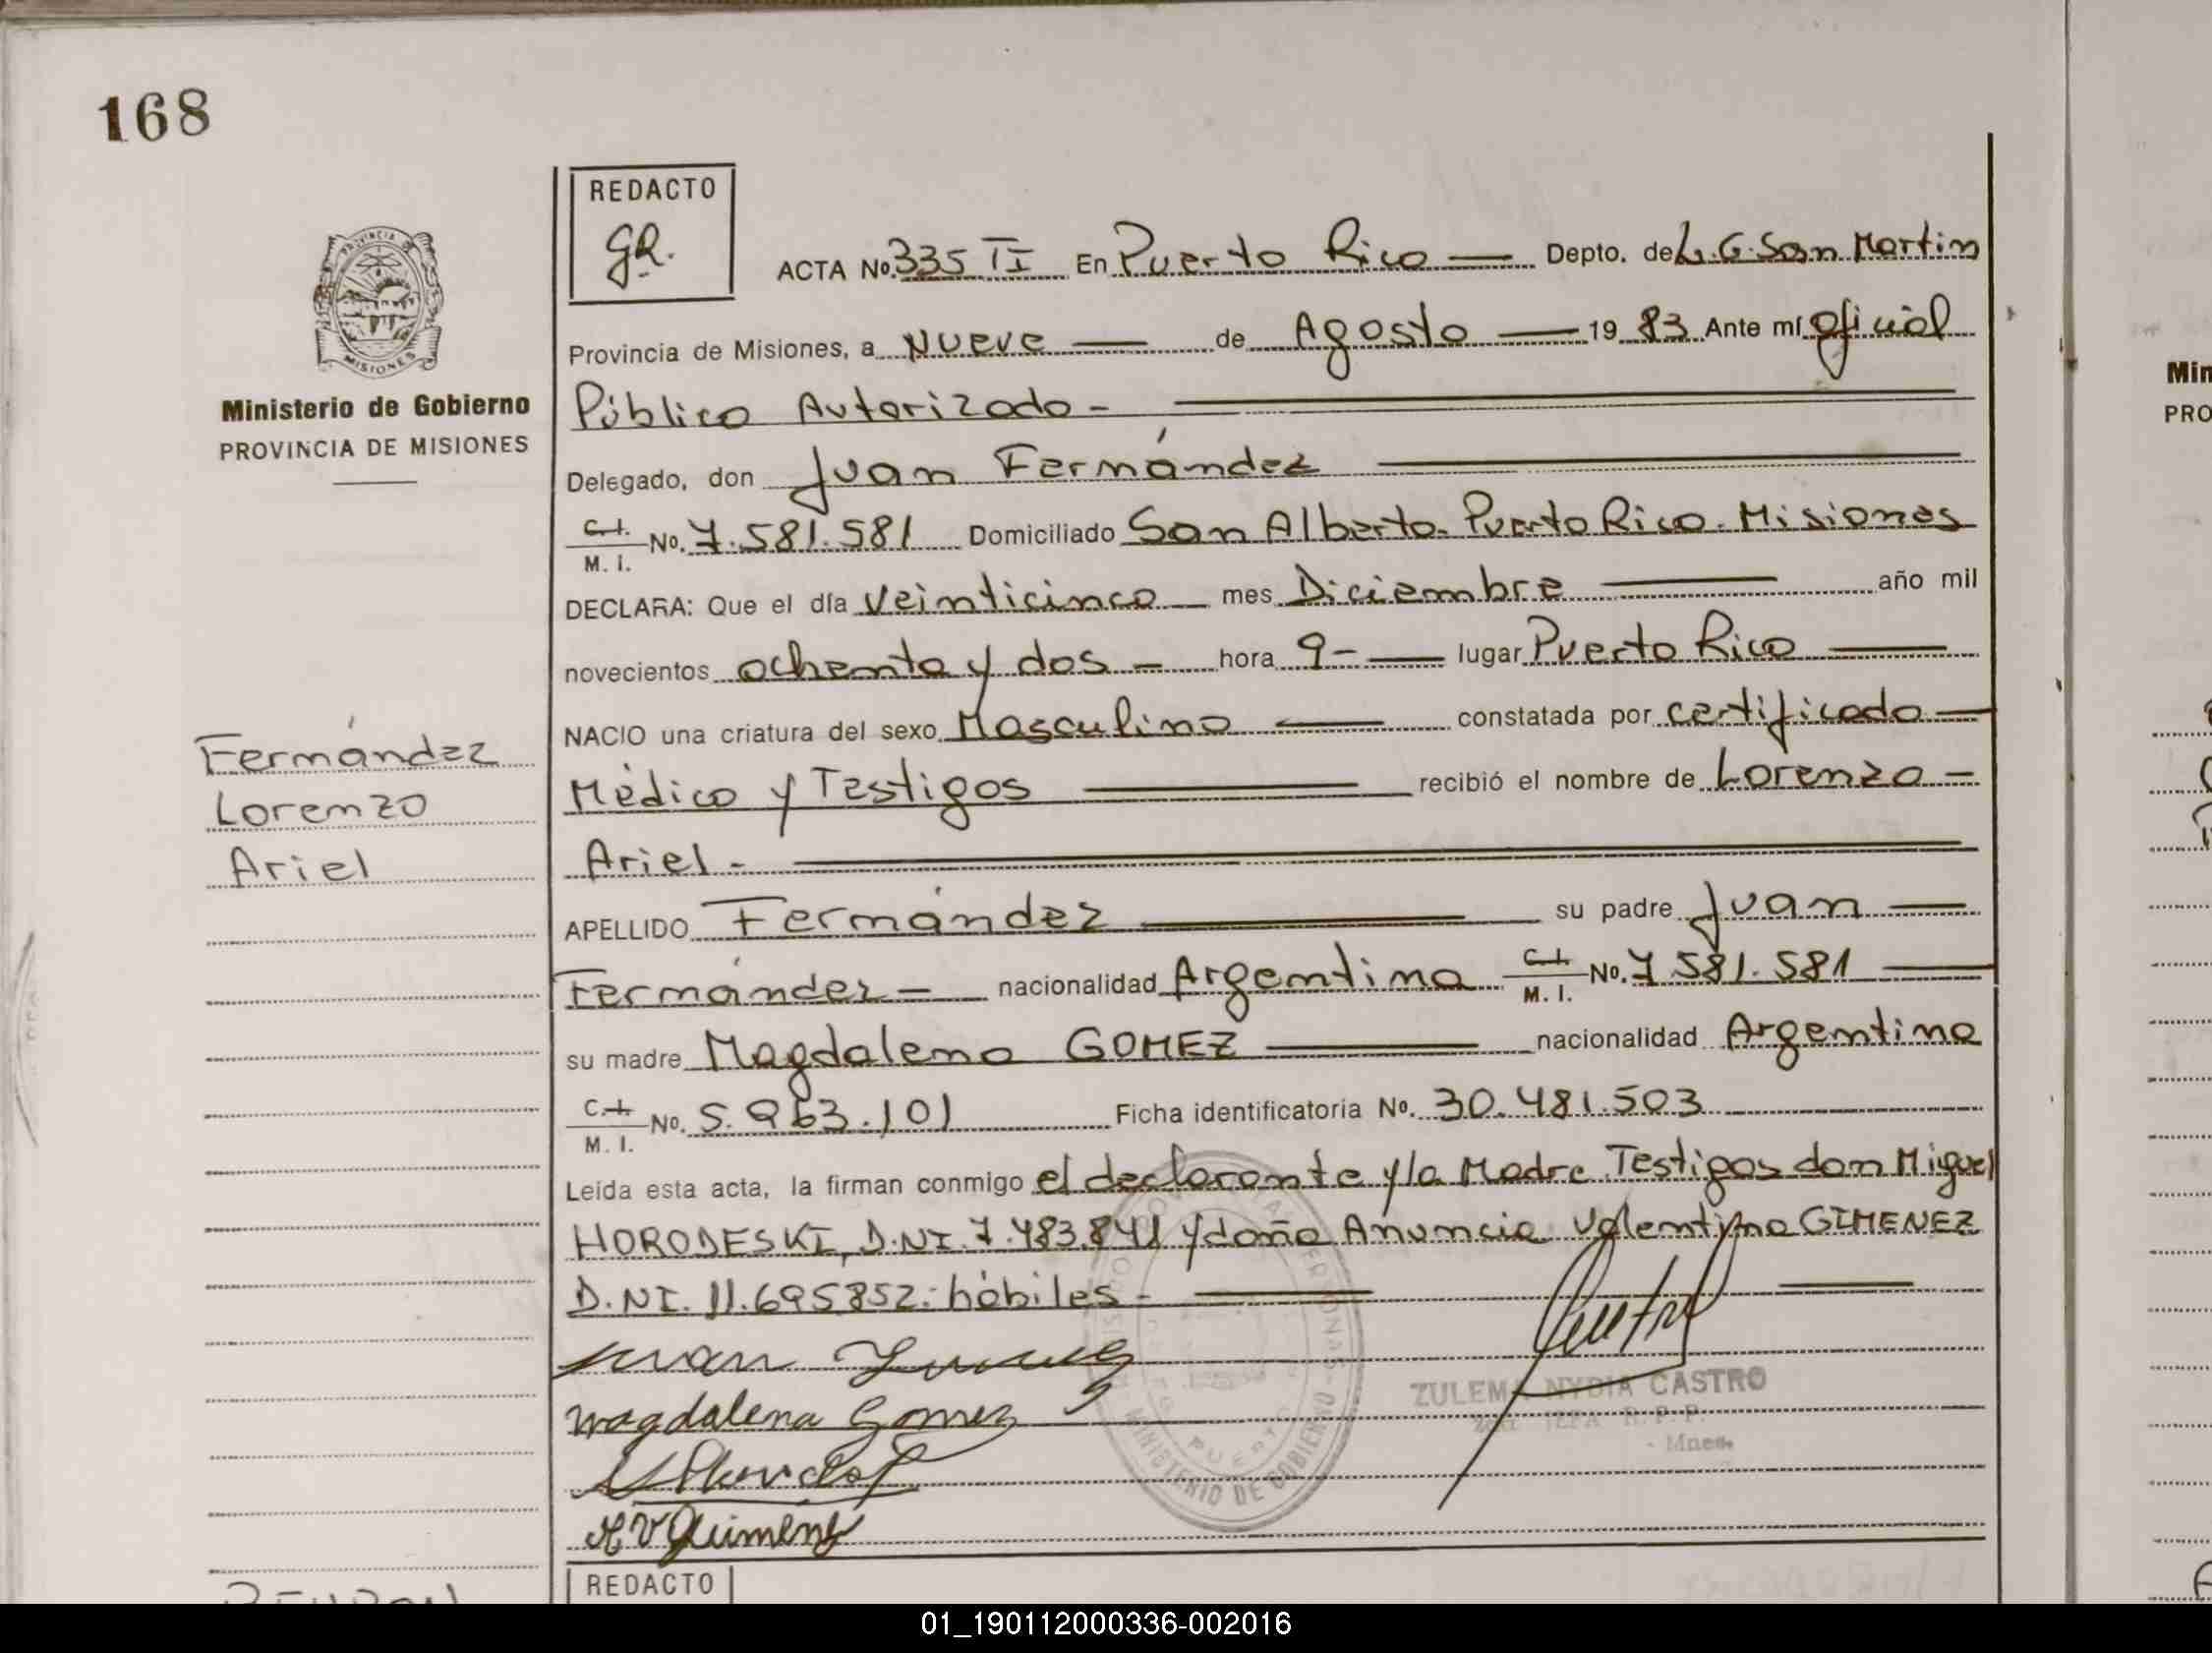 168
REDACTO
gR.
ACTA No. 335 TI En Puerto Rico — Depto. de L. G. San Martin
PROVINCIA DE
MISIONES
Provincia de Misiones, a Nueve — de Agosto — 19 83 Ante mí oficial
Ministerio de Gobierno
PROVINCIA DE MISIONES
Público Autorizado -
Delegado, don Juan Fernández
C.I. / M. I. No. 7.581.581 Domiciliado San Alberto. Puerto Rico. Misiones
DECLARA: Que el día veinticinco — mes Diciembre — año mil
novecientos ochenta y dos — hora 9- — lugar Puerto Rico —
NACIO una criatura del sexo Masculino — constatada por certificado —
Médico y Testigos — recibió el nombre de Lorenzo —
Ariel -
APELLIDO Fernández — su padre Juan —
Fernández — nacionalidad Argentina C.I. / M. I. No. 7.581.581 —
su madre Magdalena GOMEZ — nacionalidad Argentina
C.I. / M. I. No. 5.963.101 Ficha identificatoria No. 30.481.503
Leída esta acta, la firman conmigo el declarante y la Madre. Testigos don Miguel
HORODESKI, D.NI. 7.483.841 y doña Anuncia Valentina GIMENEZ
D.NI. 11.695852: hábiles -
Fernández
Lorenzo
Ariel
Juan
Magdalena Gomez
A V Gimenez
ZULEMA NYDIA CASTRO
JEFA R. P. P.
- Mnes.
MINISTERIO DE GOBIERNO
REDACTO
Min
PRO
01_190112000336-002016